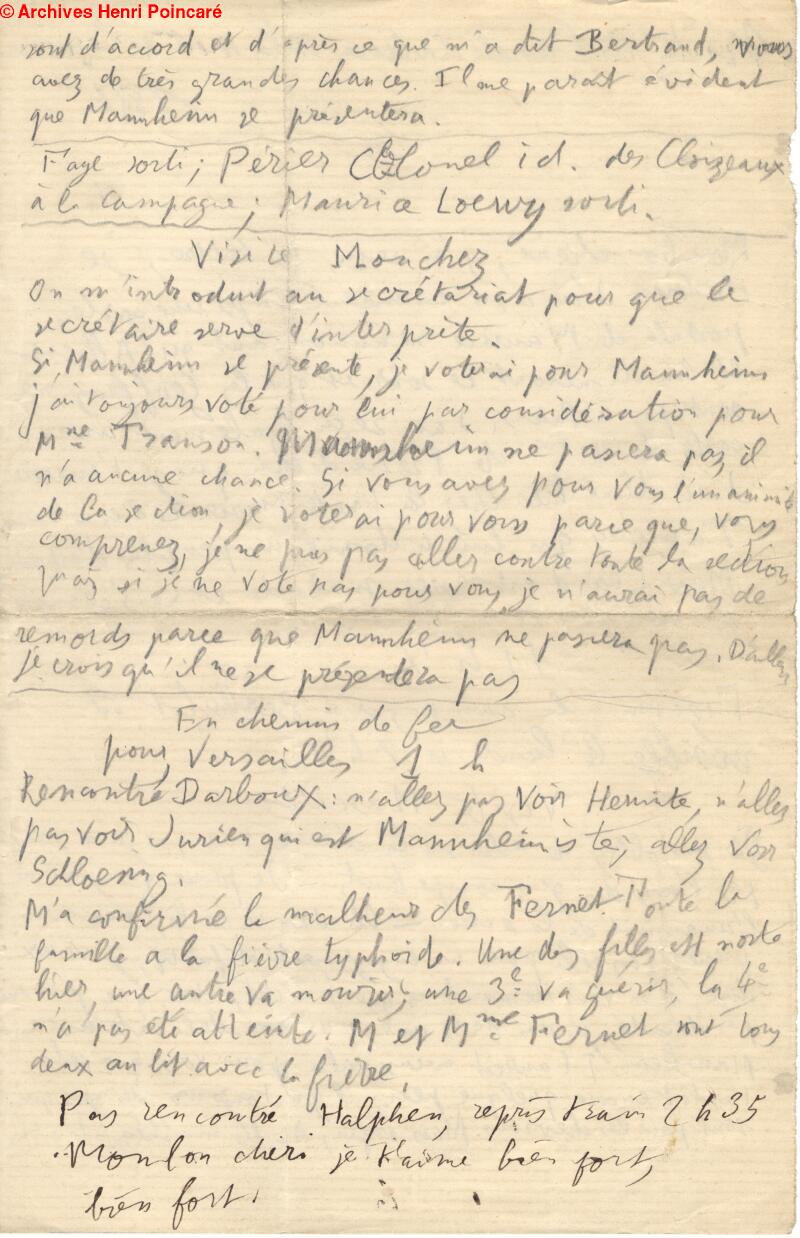 © Archives Henri Poincaré
sont d'accord et d'après ce que m'a dit Bertrand, vous
avez de très grandes chances. Il me parait évident
que Mannheim se présentera.
Faye sorti; Périer Colonel id. des Cloizeaux
à la campagne; Maurice Loewy sorti.
Visite Mouchez
On m'introduit au secrétariat pour que le
secrétaire serve d'interprète.
Si Mannheim se présente, je voterai pour Mannheim
j'ai toujours voté pour lui par considération pour
Mme Transon. Mannheim ne passera pas, il
n'a aucune chance. Si vous avez pour vous l'unanimité
de la section, je voterai pour vous parce que, vous
comprenez, je ne puis pas aller contre toute la section
mais si je ne vote pas pour vous, je n'aurai pas de
remords parce que Mannheim ne passera pas. D'ailleurs
je crois qu'il ne se présentera pas
En chemin de fer
pour Versailles 1 h
Rencontré Darboux: n'allez pas voir Hermite, n'allez
pas voir Jurien qui est Mannheimiste; allez voir
Schloesing.
M'a confirmé le malheur des Fernet. Toute la
famille a la fièvre typhoide. Une des filles est morte
hier, une autre va mourir; une 3e va guérir, la 4e
n'a pas été atteinte. M et Mme Fernet sont tous
deux au lit avec la fièvre.
Pas rencontré Halphen, repris train 2 h 35
Moulon chéri je t'aime bien fort,
bien fort.